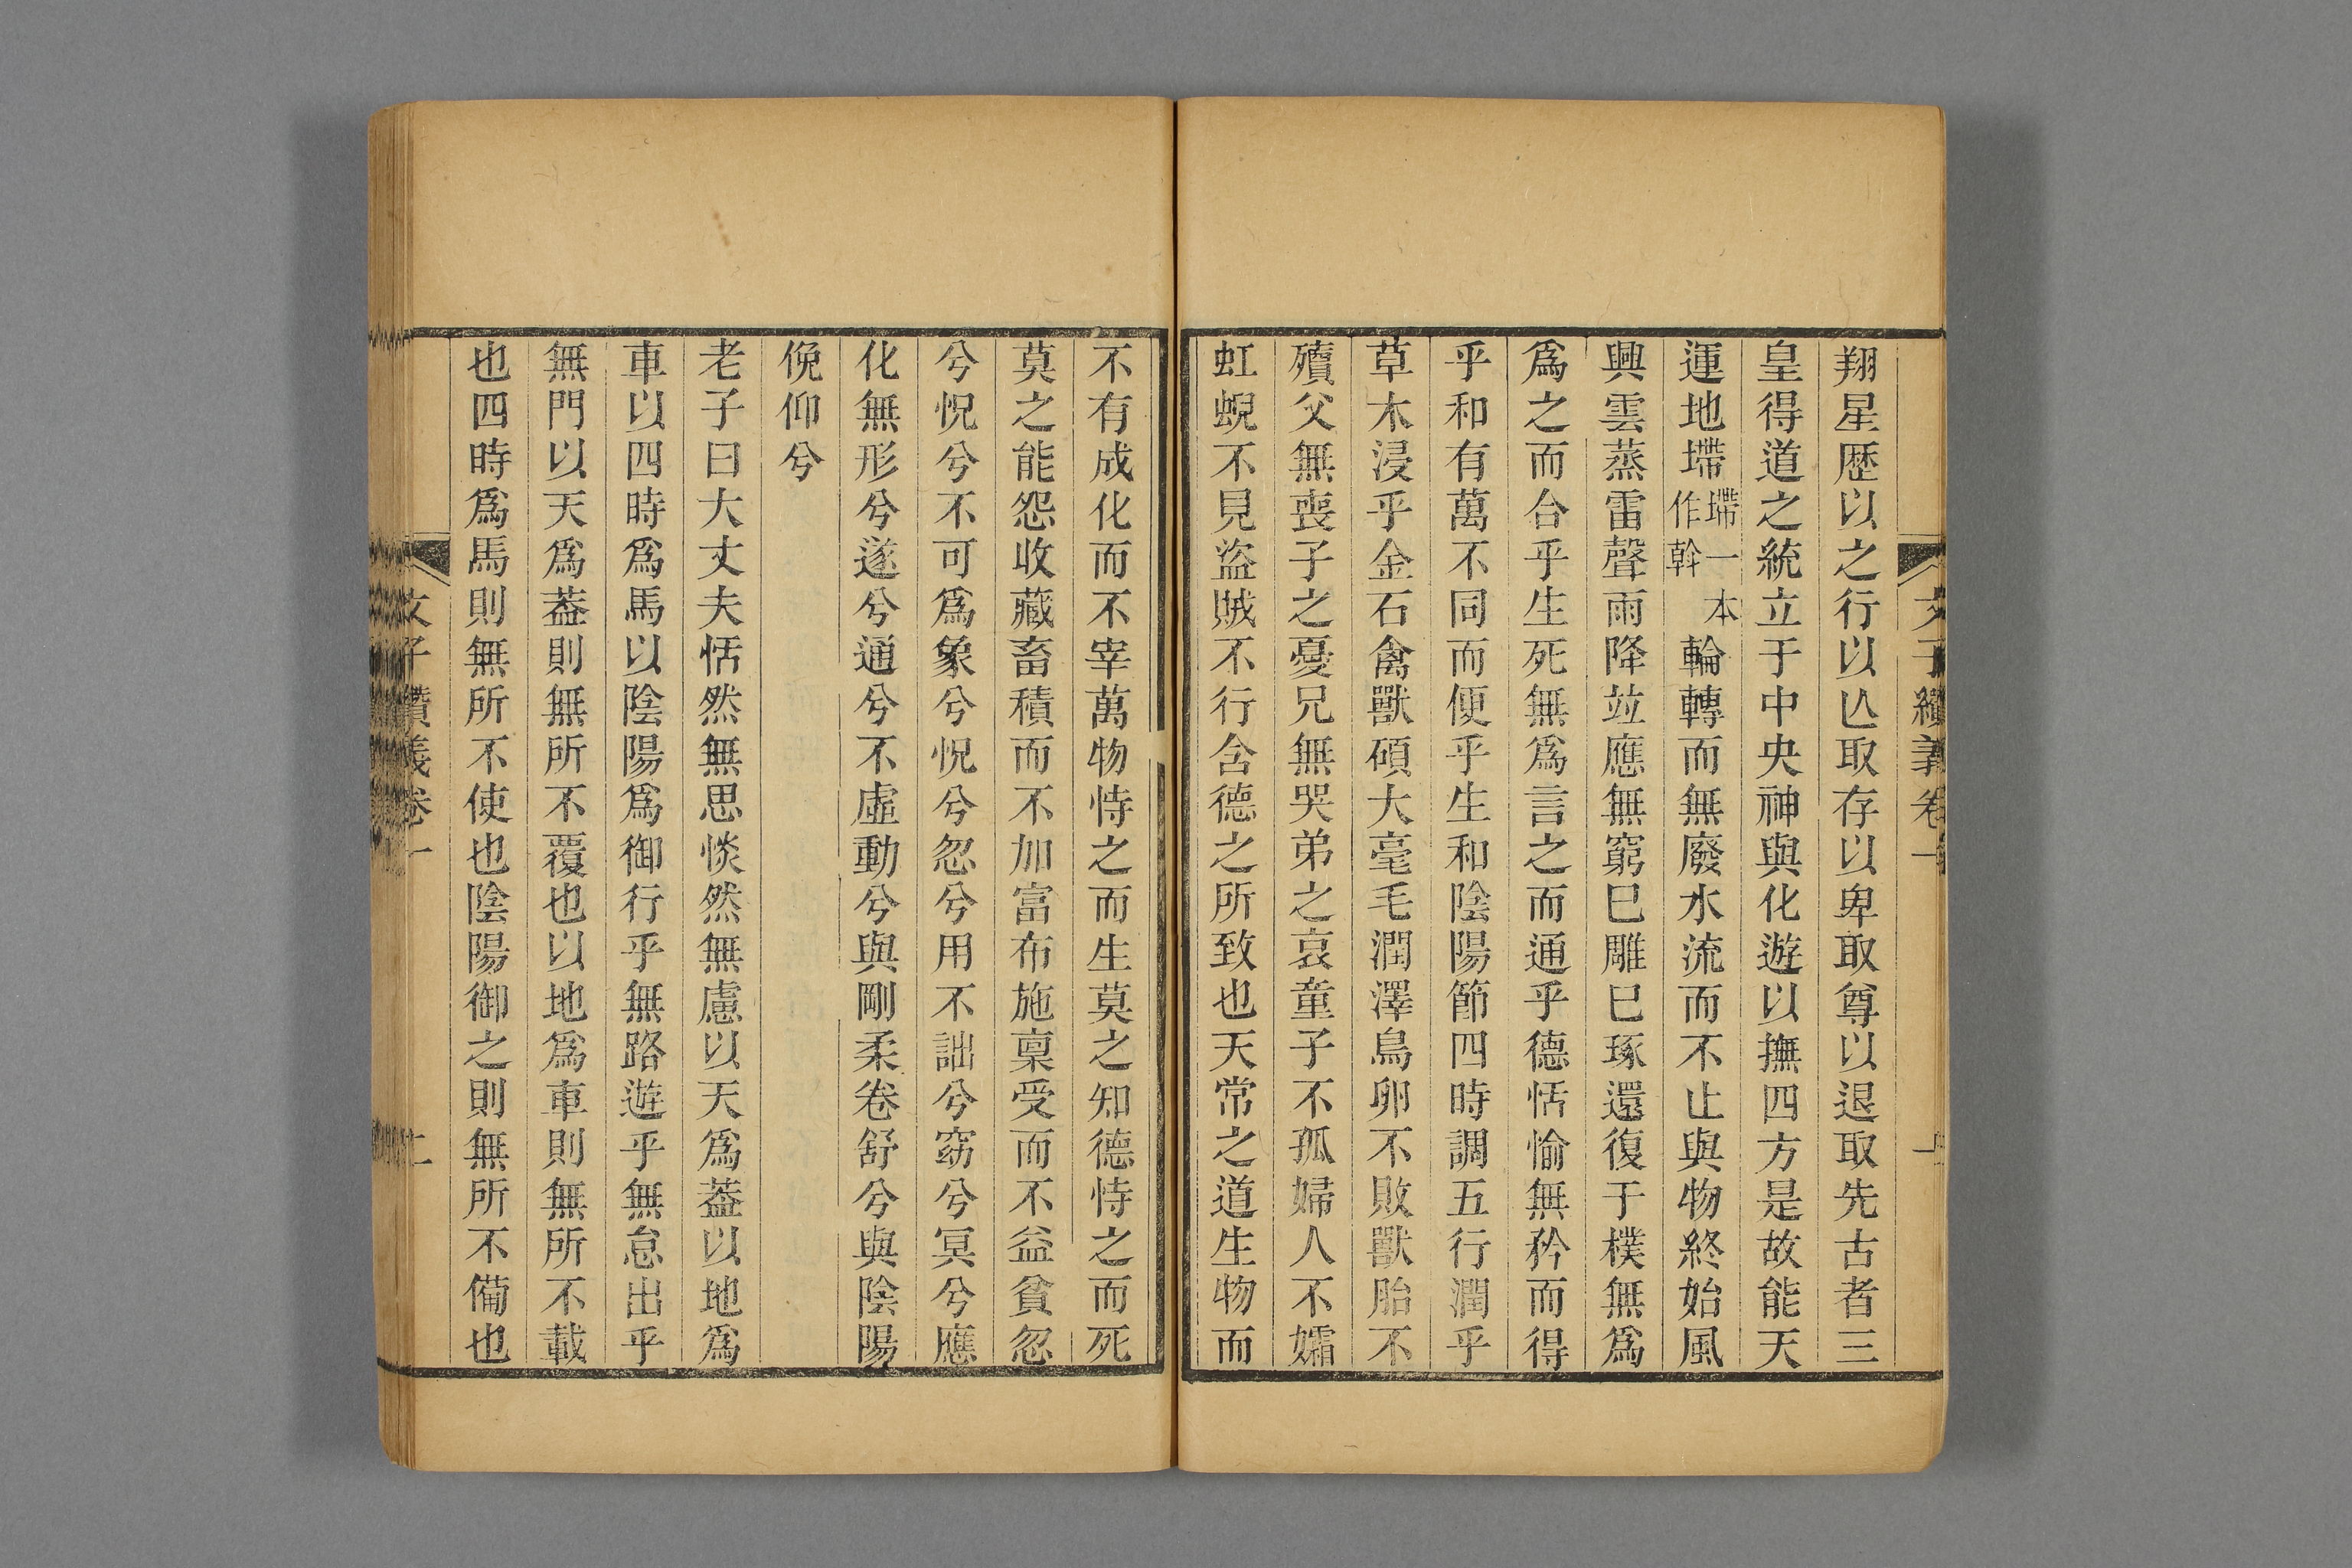 文子纘義卷一
翔星歷以之行以亾取存以卑取尊以退取先古者三
皇得道之統立于中央神與化遊以撫四方是故能天
運地墆墆一本作斡輪轉而無廢水流而不止與物終始風
興雲蒸雷聲雨降竝應無窮已雕已琢還復于樸無爲
爲之而合乎生死無爲言之而通乎德恬愉無矜而得
乎和有萬不同而便乎生和陰陽節四時調五行潤乎
草木浸乎金石禽獸碩大毫毛潤澤鳥卵不敗獸胎不
殰父無喪子之憂兄無哭弟之哀童子不孤婦人不孀
虹蜺不見盜賊不行含德之所致也天常之道生物而
不有成化而不宰萬物恃之而生莫之知德恃之而死
莫之能怨收藏畜積而不加富布施稟受而不益貧忽
兮怳兮不可爲象兮怳兮忽兮用不詘兮窈兮冥兮應
化無形兮遂兮通兮不虛動兮與剛柔卷舒兮與陰陽
俛仰兮
老子曰大丈夫恬然無思惔然無慮以天爲葢以地爲
車以四時爲馬以陰陽爲御行乎無路遊乎無怠出乎
無門以天爲葢則無所不覆也以地爲車則無所不載
也四時爲馬則無所不使也陰陽御之則無所不備也
文子纘義卷一